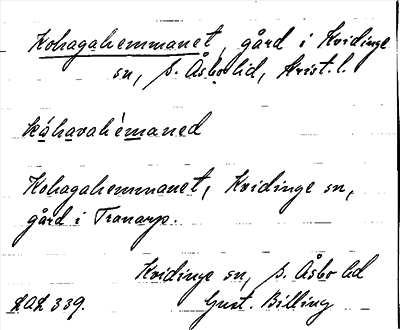 Kohagahemmanet, gård i Kvidinge
sn, S. Åsbo hd, Krist. l.
káhavahémaned
Kohagahemmanet, Kvidinge sn,
gård i Tranarp.
Kvidinge sn, S. Åsbo hd
LAL 339. Gust. Billing